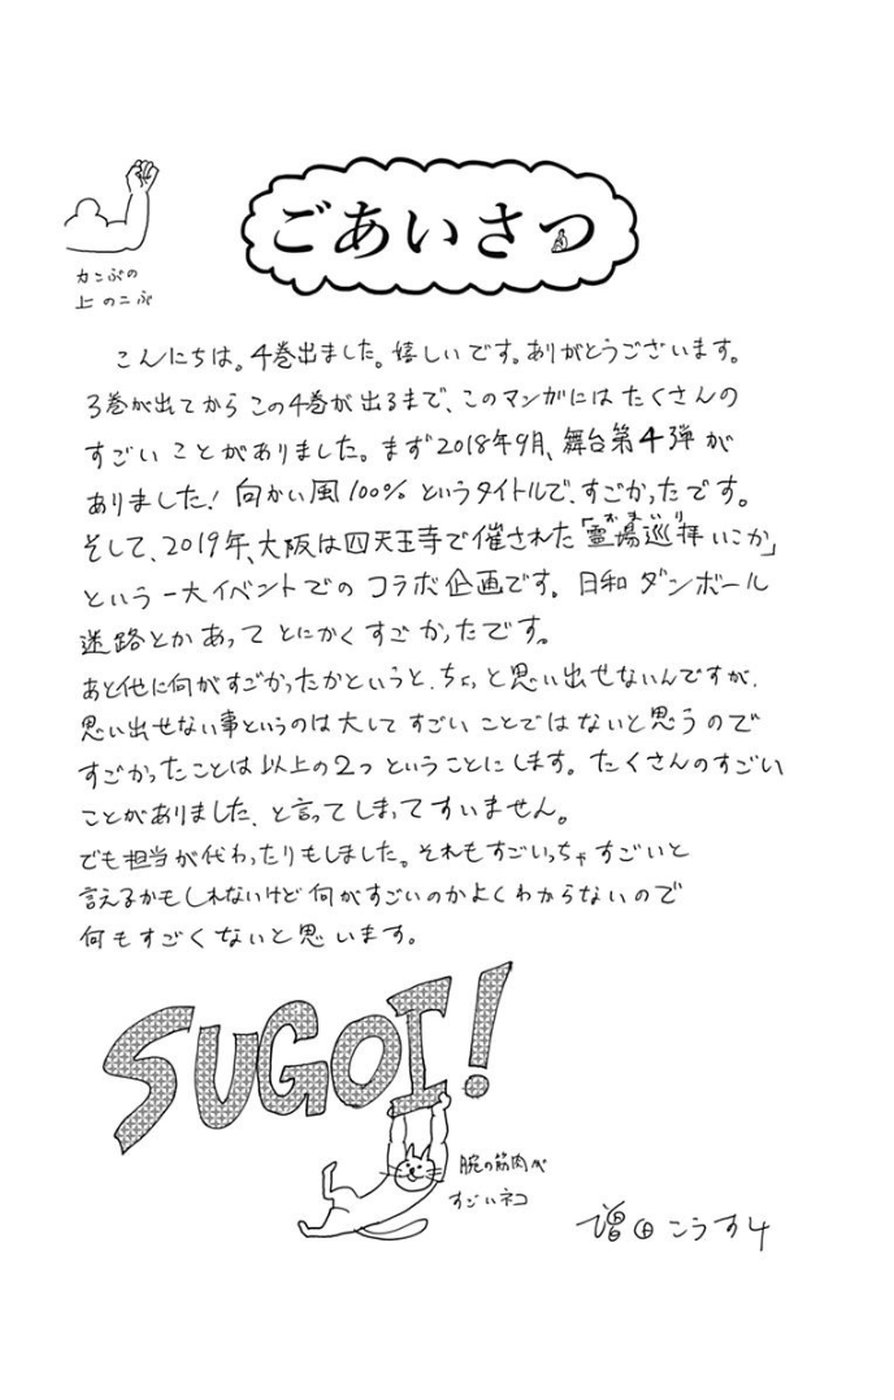 ごあいさつ
力こぶの
上のこぶ
こんにちは。4巻出ました。嬉しいです。ありがとうございます。
3巻が出てからこの4巻が出るまで、このマンガにはたくさんの
すごいことがありました。まず2018年9月、舞台第4弾が
ありました!向かい風100%というタイトルで、すごかったです。
おまいり
そして、2019年、大阪は四天王寺で催された「霊場巡拝いこか」
という一大イベントでのコラボ企画です。日和ダンボール
迷路とかあってとにかくすごかったです。
あと他に何がすごかったかというと、ちょっと思い出せないんですが、
思い出せない事というのは大してすごいことではないと思うので
すごかったことは以上の2つということにします。たくさんのすごい
ことがありました、と言ってしまってすいません。
でも担当が代わったりもしました。それもすごいっちゃすごいと
言えるかもしれないけど何がすごいのかよくわからないので
何もすごくないと思います。
SUGOI!
腕の筋肉が
すごいネコ
増田こうすけ